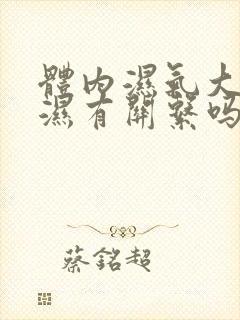 體內濕氣大
濕有關繫嗎
蔡銘超